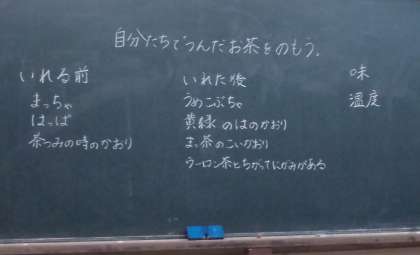 自分たちでつんだお茶をのもう。
いれる前
まっちゃ
はっぱ
茶つみの時のかおり
いれた後
うめこぶちゃ
黄緑のはのかおり
まっ茶のこいかおり
ウーロン茶とちがってにがみがある
味
温度